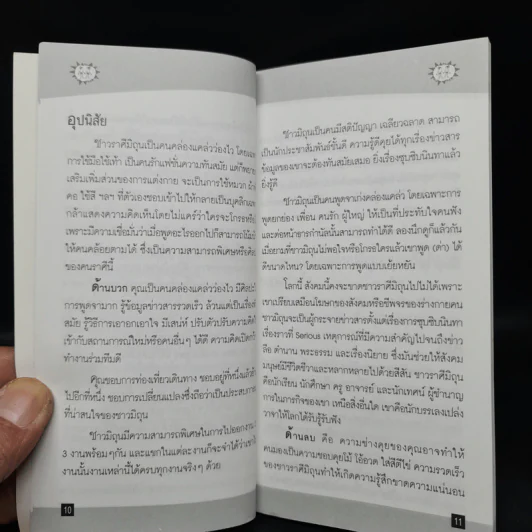 อุปนิสัย
ชาวราศีมิถุนเป็นคนคล่องแคล่วว่องไว โดยเฉพ
การใช้มือใช้เท้า เป็นคนรักแฟชั่นความทันสมัย แต่ก็พย
เสริมเพิ่มส่วนของการแต่งกาย จะเป็นการใช้หมวก ผ้า
คอ ใช้สี ฯลฯ ที่ตัวเองชอบเข้าไปให้กลายเป็นบุคลิก
กล้าแสดงความคิดเห็นโดยไม่แคร์ว่าใครจะโกรธหรือ
เพราะมีความเชื่อมั่นว่าเมื่อพูดอะไรออกไปก็สามารถโน้ม
ให้คนคล้อยตามได้ ซึ่งเป็นความสามารถพิเศษหรือคือ
ของคนราศีนี้
ด้านบวก คุณเป็นคนคล่องแคล่วว่องไว มีศิลปะ
การพูดจามาก รู้ข้อมูลข่าวสารรวดเร็ว ล้วนแต่เป็นเรื่อง
สมัย รู้วิธีการเอาอกเอาใจ มีเสน่ห์ ปรับตัวปรับความคิด
เข้ากับสถานการณ์ใหม่หรือคนอื่นๆ ได้ดี ความคิดเปิดก
ทำงานร่วมทีมดี
คุณชอบการท่องเที่ยวเดินทาง ชอบอยู่ที่หนึ่งแล้วย้
ไปอีกที่หนึ่ง ชอบการเปลี่ยนแปลงซึ่งถือว่าเป็นประสบกา
ที่น่าสนใจของชาวมิถุน
ชาวมิถุนมีความสามารถพิเศษในการไปออกงาน
3 งานพร้อมๆกัน และแขกในแต่ละงานก็จะจำได้ว่าเขา
งานนั้นงานเหล่านี้ได้ครบทุกงานจริงๆ ด้วย
10
ชาวมิถุนเป็นคนมีสติปัญญา เฉลียวฉลาด สามารถ
เป็นนักประชาสัมพันธ์ชั้นดี ความรู้ดีคุยได้ทุกเรื่องข่าวสาร
ข้อมูลของเขาจะต้องทันสมัยเสมอ ยิ่งเรื่องซุบซิบนินทาแล้ว
ยิ่งรู้ดี
ชาวมิถุนเป็นคนพูดจาเก่งคล่องแคล่ว โดยเฉพาะการ
พูดยกย่อง เพื่อน คนรัก ผู้ใหญ่ ให้เป็นที่ประทับใจคนฟัง
และต่อหน้าธารกำนัลนั้นสามารถทำได้ดี ลองนึกดูก็แล้วกัน
เมื่อยามที่ชาวมิถุนไม่พอใจหรือโกรธใครแล้วเขาพูด (ด่า) ได้
ดีขนาดไหน? โดยเฉพาะการพูดแบบเย้ยหยัน
โลกนี้ สังคมนี้คงจะขาดชาวราศีมิถุนไปไม่ได้เพราะ
เขาเปรียบเสมือนโฆษกของสังคมหรือชีพจรของร่างกายคน
ชาวมิถุนจะเป็นผู้กระจายข่าวสารตั้งแต่เรื่องการซุบซิบนินทา
เรื่องราวที่ Serious เหตุการณ์ที่มีความสำคัญไปจนถึงข่าว
ลือ ตำนาน พระธรรม และเรื่องนิยาย ซึ่งมันช่วยให้สังคม
มนุษย์มีชีวิตชีวาและหลากหลายไปด้วยสีสัน ชาวราศีมิถุน
คือนักเรียน นักศึกษา ครู อาจารย์ และนักเทศน์ ผู้ชำนาญ
การในภารกิจของเขา เหนือสิ่งอื่นใด เขาคือนักบรรเลงเปล่ง
วาจาให้โลกได้รับรู้รับฟัง
ด้านลบ คือ ความช่างคุยของคุณอาจทำให้
คนมองเป็นความชอบคุยโม้ โอ้อวด ใส่สีตีไข่ ความรวดเร็ว
ของชาวราศีมิถุนทำให้เกิดความรู้สึกขาดความแน่นอน
11